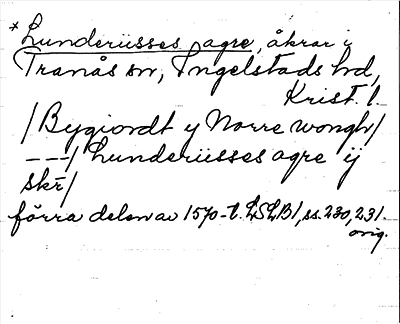 *Lunderiisses agre, åkrar i
Tranås sn, Ingelstads hd,
Krist. l.
/Bygiordt y Norre wongh/
---/Lunderiisses agre ÿ
skr̄/
förra delen av 1570-t. LSLB1, ss. 230, 231.
orig.